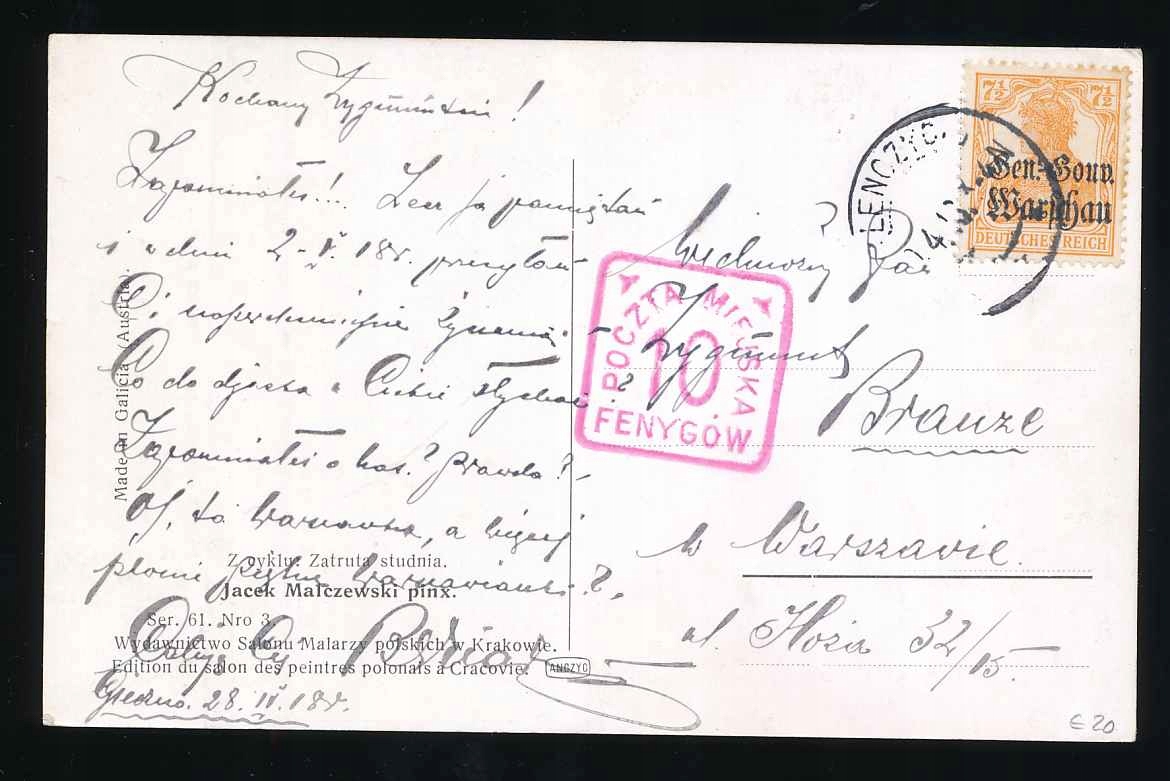 Kochany Zygmuntcie!
Zapomniałeś!... Lecz ja pamiętam
i w dniu 2-V. 18r. przesyłam
Ci najserdeczniejsze życzenia
Co do djaska u Ciebie słychać?
Zapomniałeś o nas? Prawda?
Oj, ta Warszawka, a więcej
płomi piękne Warszawianki?
Całuję Cię
28. IV. 18r.
Made in Galicia (Austria).
Z cyklu: Zatruta studnia.
Jacek Malczewski pinx.
Ser. 61. Nro 3.
Wydawnictwo Salonu Malarzy polskich w Krakowie.
Edition du salon des peintres polonais à Cracovie.
ANCZYC
7½ 7½
Gen.-Gouv.
Warschau
DEUTSCHES REICH
LENCZYCA
POCZTA MIEJSKA
10
FENYGÓW
Wielmożny Pan
Zygmunt
Brauze
w Warszawie.
ul. Hoża 32/15.
€ 20